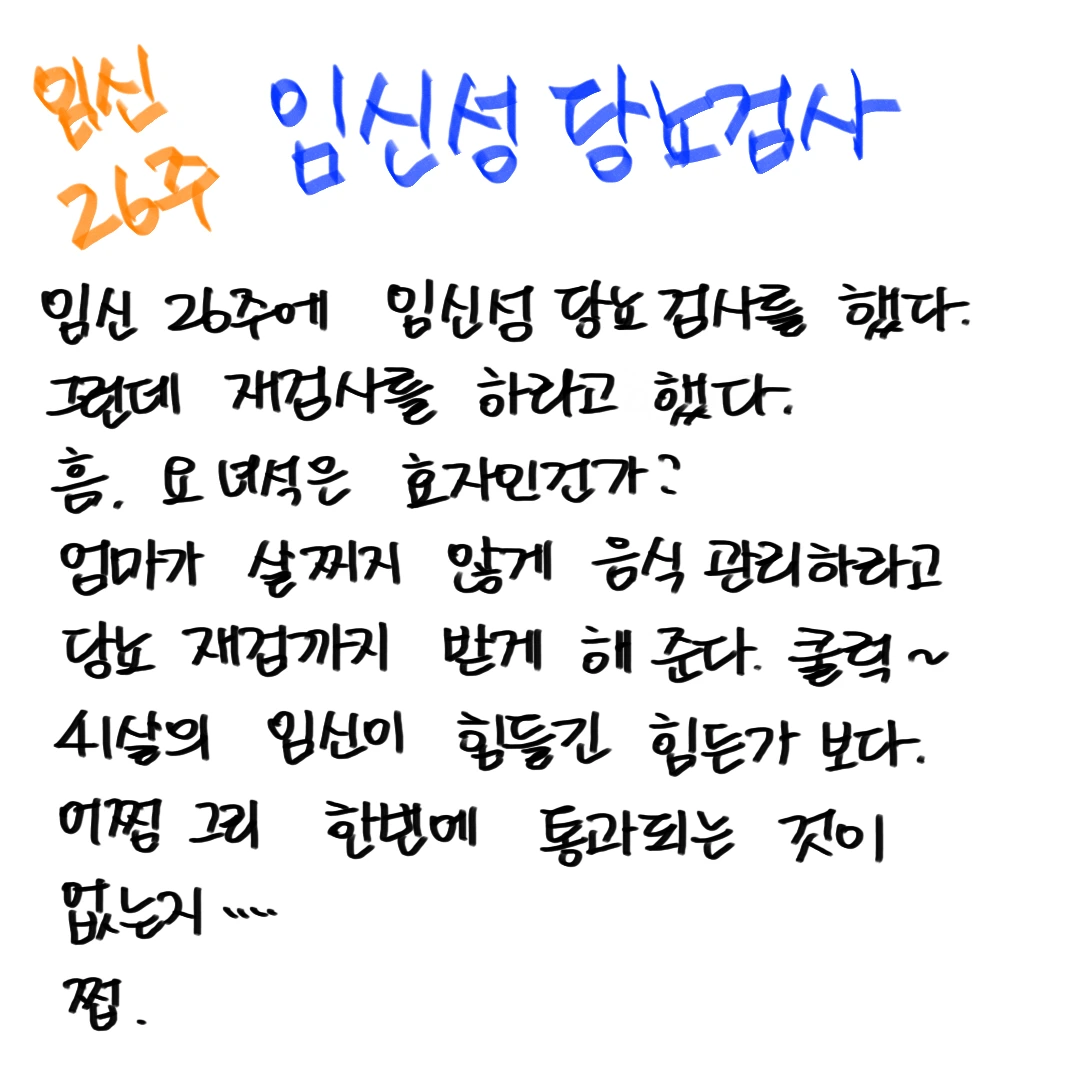 임신
26주
임신성 당뇨검사
임신 26주에 임신성 당뇨 검사를 했다.
그런데 재검사를 하라고 했다.
흠. 요 녀석은 효자인건가?
엄마가 살찌지 않게 음식 관리하라고
당뇨 재검까지 받게 해 준다. 쿨럭~
41살의 임신이 힘들긴 힘든가 보다.
어쩜 그리 한번에 통과되는 것이
없는지....
쩝.